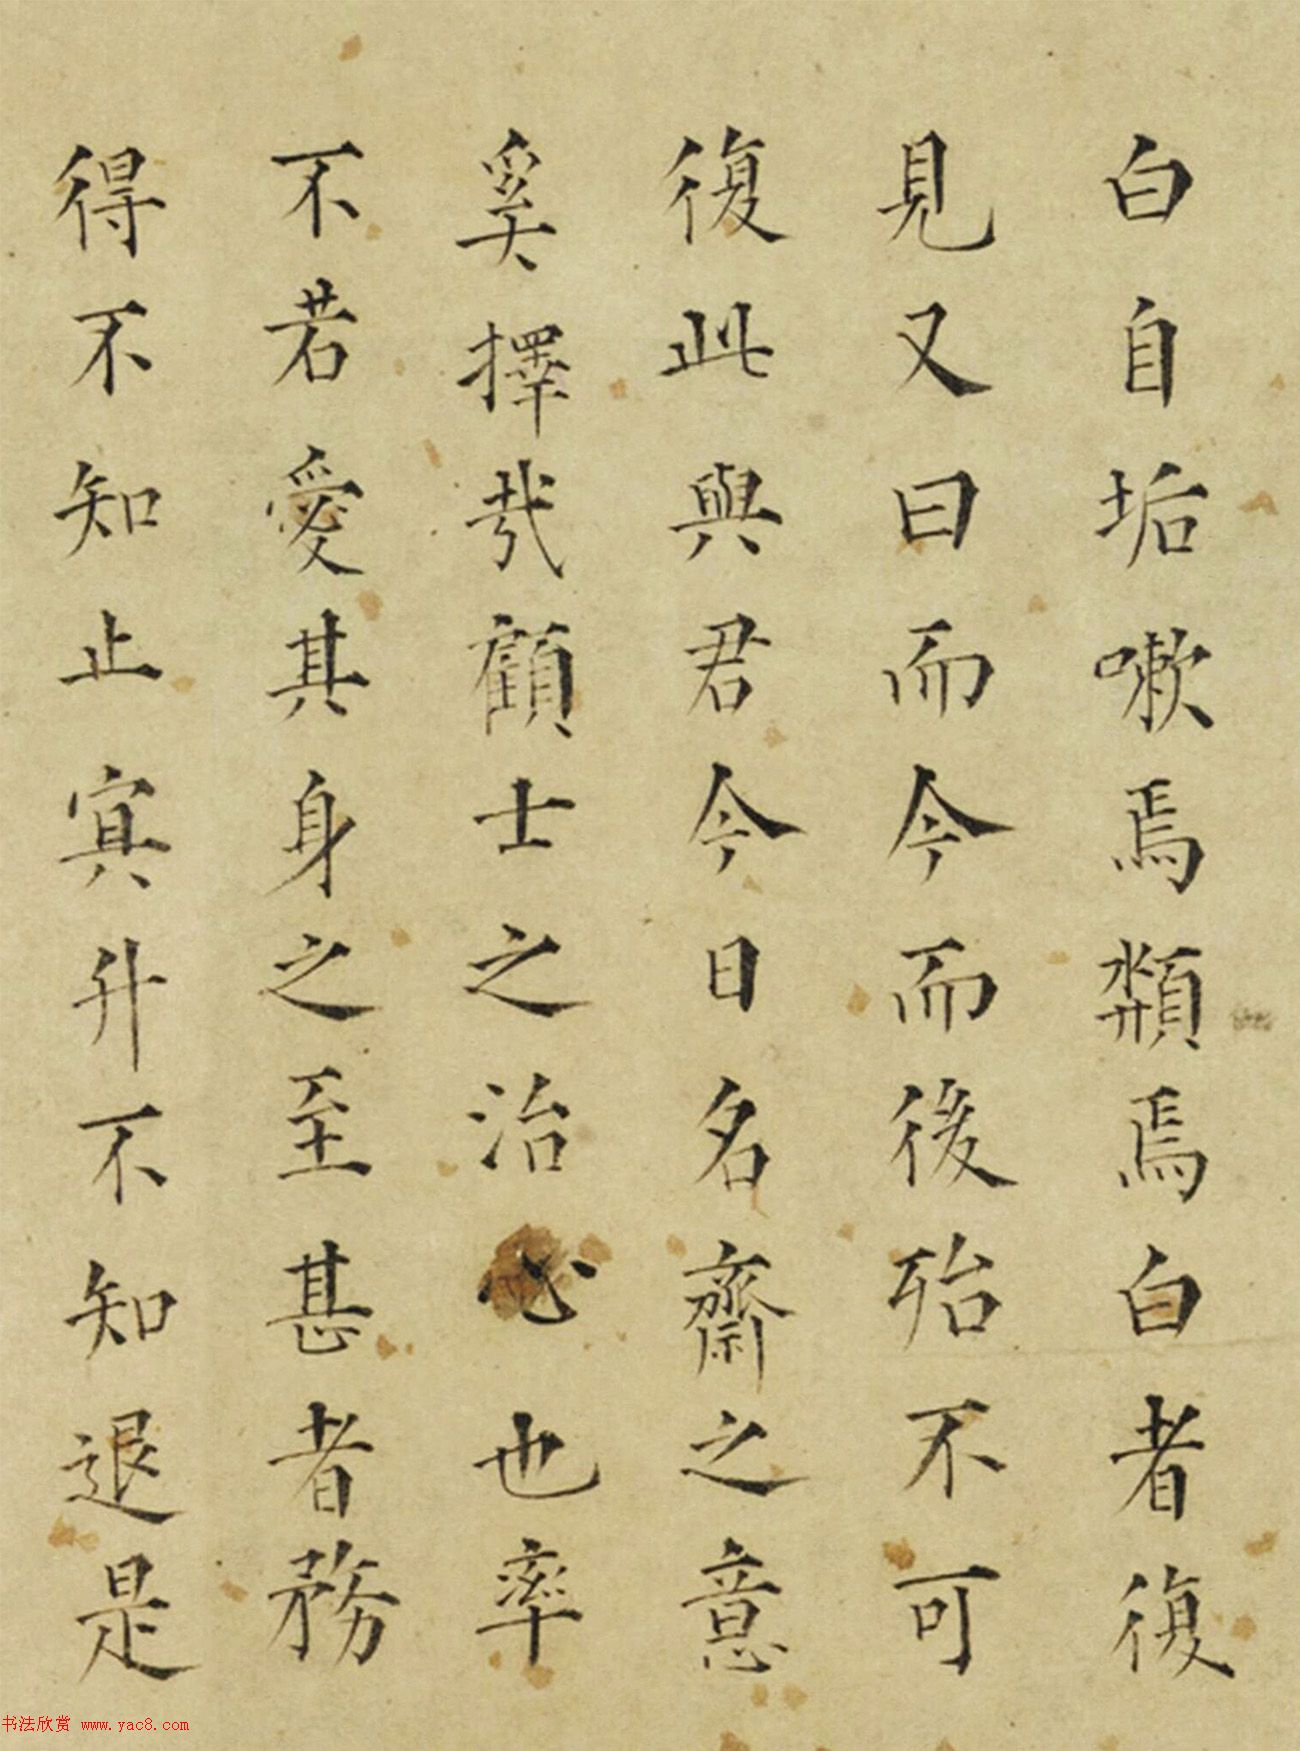 白自垢嗽焉類焉白者復
見又曰而今而後殆不可
復此與君今日名齋之意
奚擇哉顧士之治心也率
不若愛其身之至甚者務
得不知止冥升不知退是
书法欣赏 www.yac8.com